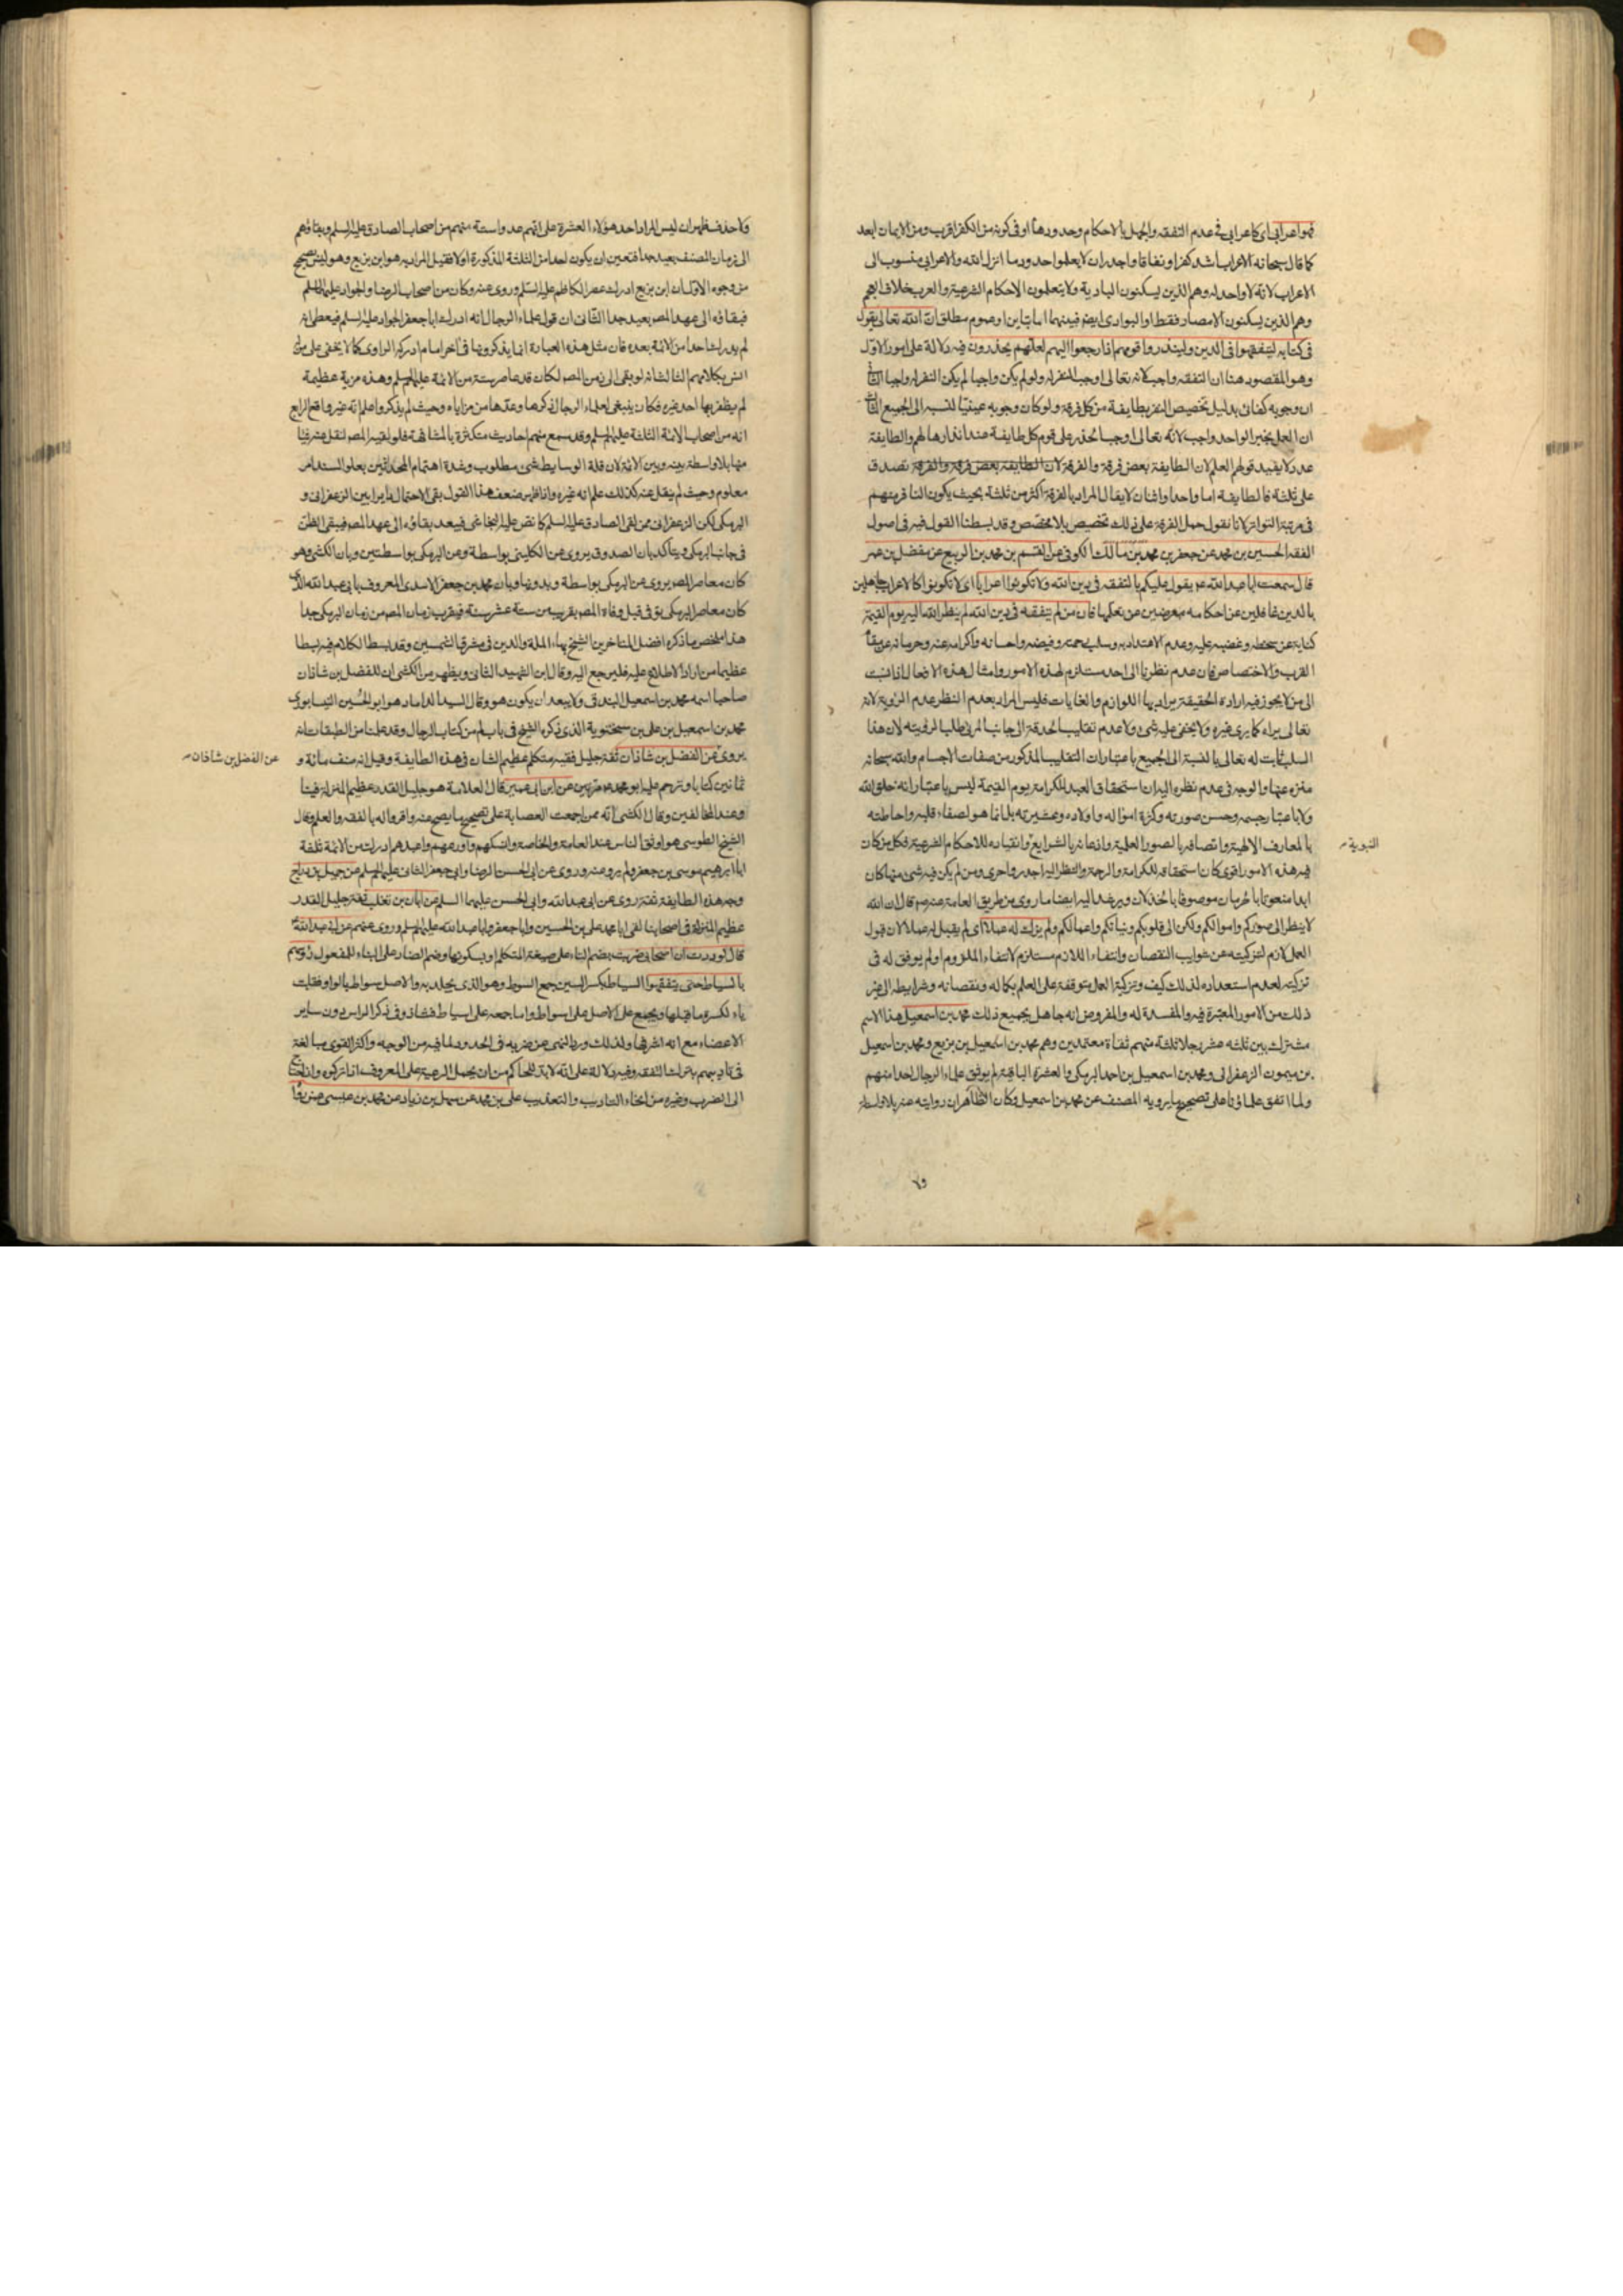 فهو اعرابي اى كاعرابي في عدم التفقه والجهل بالاحكام وحدودها او في كونه من الكفر اقرب ومن الايمان ابعد
كما قال سبحانه الاعراب اشد كفرا ونفاقا واجدر ان لا يعلموا حدود ما انزل الله والاعرابي منسوب الى
الاعراب لانه لا واحد له وهم الذين يسكنون البادية ولا يتعلمون الاحكام الشرعية والعرب خلافا لهم
وهم الذين يسكنون الامصار فقط او البوادى ايضا فبينهما اما تباين او عموم مطلق ان الله تعالى يقول
في كتابه ليتفقهوا في الدين ولينذروا قومهم اذا رجعوا اليهم لعلهم يحذرون فيه دلالة على امور الاول
وهو المقصود هنا ان التفقه واجب لانه تعالى اوجب النفر له ولو لم يكن واجبا لم يكن النفر له واجبا الثاني
ان وجوبه كفائي بدليل تخصيص النفر بطايفة من كل فرقة ولو كان وجوبه عينيا لنسبه الى الجميع الثالث
ان العمل بخبر الواحد واجب لانه تعالى اوجب الحذر على قوم كل طايفة عند انذارها لهم والطايفة
عدد لا يفيد قولهم العلم لان الطايفة بعض فرقة والفرقة لان الطايفة بعض فرقة والفرقة تصدق
على ثلثة فالطايفة اما واحد او اثنان لا يقال المراد بالفرقة اكثر من ثلثة بحيث يكون النافر منهم
في مرتبة التواتر لانا نقول حمل الفرقة على ذلك تخصيص بلا مخصص وقد بسطنا القول فيه في اصول
الفقه الحسين بن محمد عن جعفر بن محمد بن مالك الكوفي عن القسم بن محمد بن الربيع عن مفضل بن عمر
قال سمعت ابا عبد الله ع يقول عليكم بالتفقه في دين الله ولا تكونوا اعرابا اى لا تكونوا كالاعراب جاهلين
بالدين غافلين عن احكامه معرضين عن تعلمها فان من لم يتفقه في دين الله لم ينظر الله اليه يوم القيمة
كناية عن سخطه وغضبه عليه وعدم الاعتداد به وسلب رحمته وفيضه واحسانه واكرامه عنه وحرمانه عن مقام
القرب والاختصاص فان عدم نظرنا الى احد مستلزم لهذه الامور وامثال هذه الافعال اذا نسبت
الى من لا يجوز فيه ارادة الحقيقة يراد بها اللوازم والغايات فليس المراد بعدم النظر عدم الرؤية لانه
تعالى يراه كما يرى غيره ولا يخفى عليه شئ ولا عدم تقليب الحدقة الى جانب المرئى طلبا لرؤيته لان هذا
السلب ثابت له تعالى بالنسبة الى الجميع باعتبار ان التقليب المذكور من صفات الاجسام والله سبحانه
منزه عنها والوجه في عدم نظره اليه ان استحقاق العبد للكرامة يوم القيمة ليس باعتبار انه خلق الله
ولا باعتبار جسمه وحسن صورته وكثرة امواله واولاده وعشيرته بل انما هو لصفاء قلبه واحاطته
بالمعارف الالهية واتصافه بالصور العلمية واذعانه بالشرايع وانقياده للاحكام الشرعية فكل من كان
النبوية
فيه هذه الامور اقوى كان استحقاقه للكرامة والرحمة والنظر اليه اجدر واحرى ومن لم يكن فيه شئ منها كان
ابدا منعوتا بالحرمان موصوفا بالخذلان ويرغد اليه ايضا ما روى من طريق العامة عنه ص قال ان الله
لا ينظر الى صوركم واموالكم ولكن الى قلوبكم ونياتكم واعمالكم ولم يزك له عملا اى لم يقبل له عملا لان قبول
العمل لازم لتزكيته عن شوايب النقصان وانتفاء اللازم مستلزم لانتفاء الملزوم او لم يوفق له في
تزكيته لعدم استعداده لذلك كيف وتزكية العمل متوقفة على العلم بكماله ونقصانه وشرايطه الى غير
ذلك من الامور المعتبرة فيه والمفسدة له والمفروض انه جاهل بجميع ذلك محمد بن اسمعيل هذا الاسم
مشترك بين ثلثه عشر رجلا ثلثة منهم ثقاة معتمدين وهم محمد بن اسمعيل بن بزيع ومحمد بن اسمعيل
بن ميمون الزعفراني ومحمد بن اسمعيل بن احمد البرمكي والعشرة الباقية لم يوثق علماء الرجال احدا منهم
ولما اتفق علماؤنا على تصحيح ما يرويه المصنف عن محمد بن اسمعيل فكان الظاهر ان روايته عنه بلا واسطة
ولا حذف ظهر ان ليس المراد احد هؤلاء العشرة على انهم عدوا ستة منهم من اصحاب الصادق عليه السلم وبقاؤهم
الى زمان المصنف بعيد جدا فتعين ان يكون احدا من الثلثة المذكورة اولا فقيل المراد به هو ابن بزيع وهو ليس بصحيح
من وجوه الاول ان ابن بزيع ادرك عصر الكاظم عليه السلم وروى عنه وكان من اصحاب الرضا والجواد عليهما السلم
فبقاؤه الى عهد المصر بعيد جدا الثاني ان قول علماء الرجال انه ادرك ابا جعفر الجواد عليه السلم فيعطى انه
لم يدرك احدا من الائمة بعده فان مثل هذه العبارة انما يذكرونها في آخر امام ادركه الراوى كما لا يخفى على من له
انس بكلامهم الثالث انه لو بقى الى زمن المصر لكان قد عاصر ستة من الائمة عليهم السلم وهذه مزية عظيمة
لم يظفر بها احد غيره فكان ينبغي لعلماء الرجال ذكرها وعدها من مزاياه وحيث لم يذكروا علم انه غير واقع الرابع
انه من اصحاب الائمة الثلثة عليهم السلم وقد سمع منهم احاديث متكثرة بالمشافهة فلو لقيه المصر لنقل عنه شيئا
منها بلا واسطة بينه وبين الائمة لان قلة الوسايط شئ مطلوب وشدة اهتمام المحدثين بعلو السند امر
معلوم وحيث لم ينقل عنه كذلك علم انه غيره واذا ظهر ضعف هذا القول بقى الاحتمال دايرا بين الزعفراني و
البرمكي لكن الزعفراني ممن لقى الصادق عليه السلم كما نص عليه النجاشي فيبعد بقاؤه الى عهد المصر فيبقى الظن
في جانب البرمكي ويتأكد بان الصدوق يروى عن الكليني بواسطة وعن البرمكي بواسطتين وبان الكشي وهو
كان معاصر المصر يروى عن البرمكي بواسطة وبدونها وبان محمد بن جعفر الاسدى المعروف بابي عبد الله الذى
كان معاصر البرمكي توفي قبل وفاة المصر بقريب من ستة عشر سنة فيقرب زمان المصر من زمان البرمكي جدا
هذا ملخص ما ذكره افضل المتاخرين الشيخ بهاء الملة والدين في مشرق الشمسين وقد بسط الكلام فيه بسطا
عظيما من اراد الاطلاع عليه فليرجع اليه وقال ابن الشهيد الثاني ويظهر من الكشي ان للفضل بن شاذان
صاحبا اسمه محمد بن اسمعيل البندقي ولا يبعد ان يكون هو وقال السيد الداماد هو ابو الحسين النيسابورى
محمد بن اسمعيل بن على بن سختويه الذى ذكره الشيخ في باب لم من كتاب الرجال وقد علمنا من الطبقات انه
يروى عن الفضل بن شاذان ثقة جليل فقيه متكلم عظيم الشان في هذه الطايفة وقيل انه صنف مائة و
عن الفضل بن شاذان
ثمانين كتابا وترحم عليه ابو محمد ع مرتين عن ابن ابي عمير قال العلامة هو جليل القدر عظيم المنزلة فينا
وعند المخالفين وقال الكشي انه ممن اجمعت العصابة على تصحيح ما يصح عنه واقروا له بالفقه والعلم وقال
الشيخ الطوسي هو اوثق الناس عند العامة والخاصة وانسكهم واورعهم واعبدهم ادرك من الائمة ثلثة
ابا ابرهيم موسى بن جعفر ولم يرو عنه وروى عن ابي الحسن الرضا وابي جعفر الثاني عليهم السلم عن جميل بن دراج
وجه هذه الطايفة ثقة روى عن ابي عبد الله وابي الحسن عليهما السلم عن ابان بن تغلب ثقة جليل القدر
عظيم المنزلة في اصحابنا لقى ابا محمد على بن الحسين وابا جعفر وابا عبد الله عليهم السلم وروى عنهم عن ابي عبد الله ع
قال لوددت ان اصحابي ضربت بضم التاء على صيغة المتكلم او بسكونها وضم الضاد على البناء للمفعول رؤسهم
بالسياط حتى يتفقهوا السياط بكسر السين جمع السوط وهو الذى يجلد به والاصل سواط بالواو فقلبت
ياء لكسرة ما قبلها ويجمع على الاصل على اسواط واما جمعه على اسياط فشاذ وفي ذكر الراس دون ساير
الاعضاء مع انه اشرفها ولذلك ورد النهى عن ضربه في الحدود لما فيه من الوجه واكثر القوى مبالغة
في تاديبهم بترك التفقه وفيه دلالة على انه لا بد للحاكم من ان يحمل الرعية على المعروف اذا تركوه وان احتاج
الى الضرب وغيره من انحاء التاديب والتعذيب على بن محمد عن سهل بن زياد عن محمد بن عيسى عمن رواه